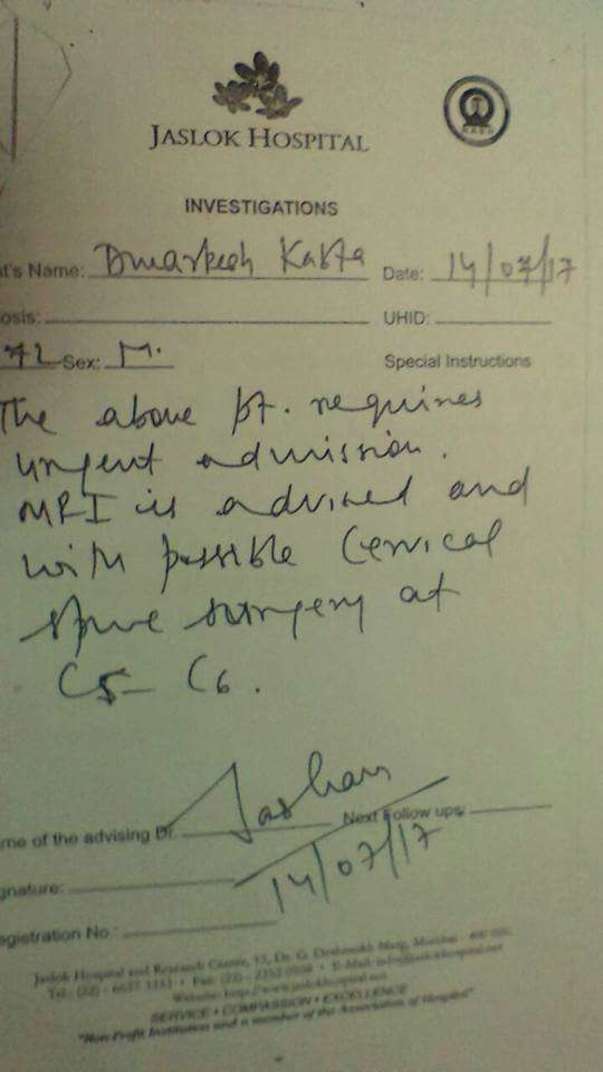 JASLOK HOSPITAL
INVESTIGATIONS
t's Name: Dwarkesh Date: 14/07/17
osis: UHID:
72 Sex: M. Special Instructions
The above pt. requires
urgent admission.
MRI is advised and
with possible Cervical
spine surgery at
C5- C6.
me of the advising Dr. Next Follow ups:
gnature: 14/07/17
egistration No.:
Jaslok Hospital and Research Centre, 15, Dr. G. Deshmukh Marg, Mumbai
Website: http://www.jaslokhospital.net
SERVICE • COMPASSION • EXCELLENCE
"Non-Profit Institution and a member of the Association of Hospital"